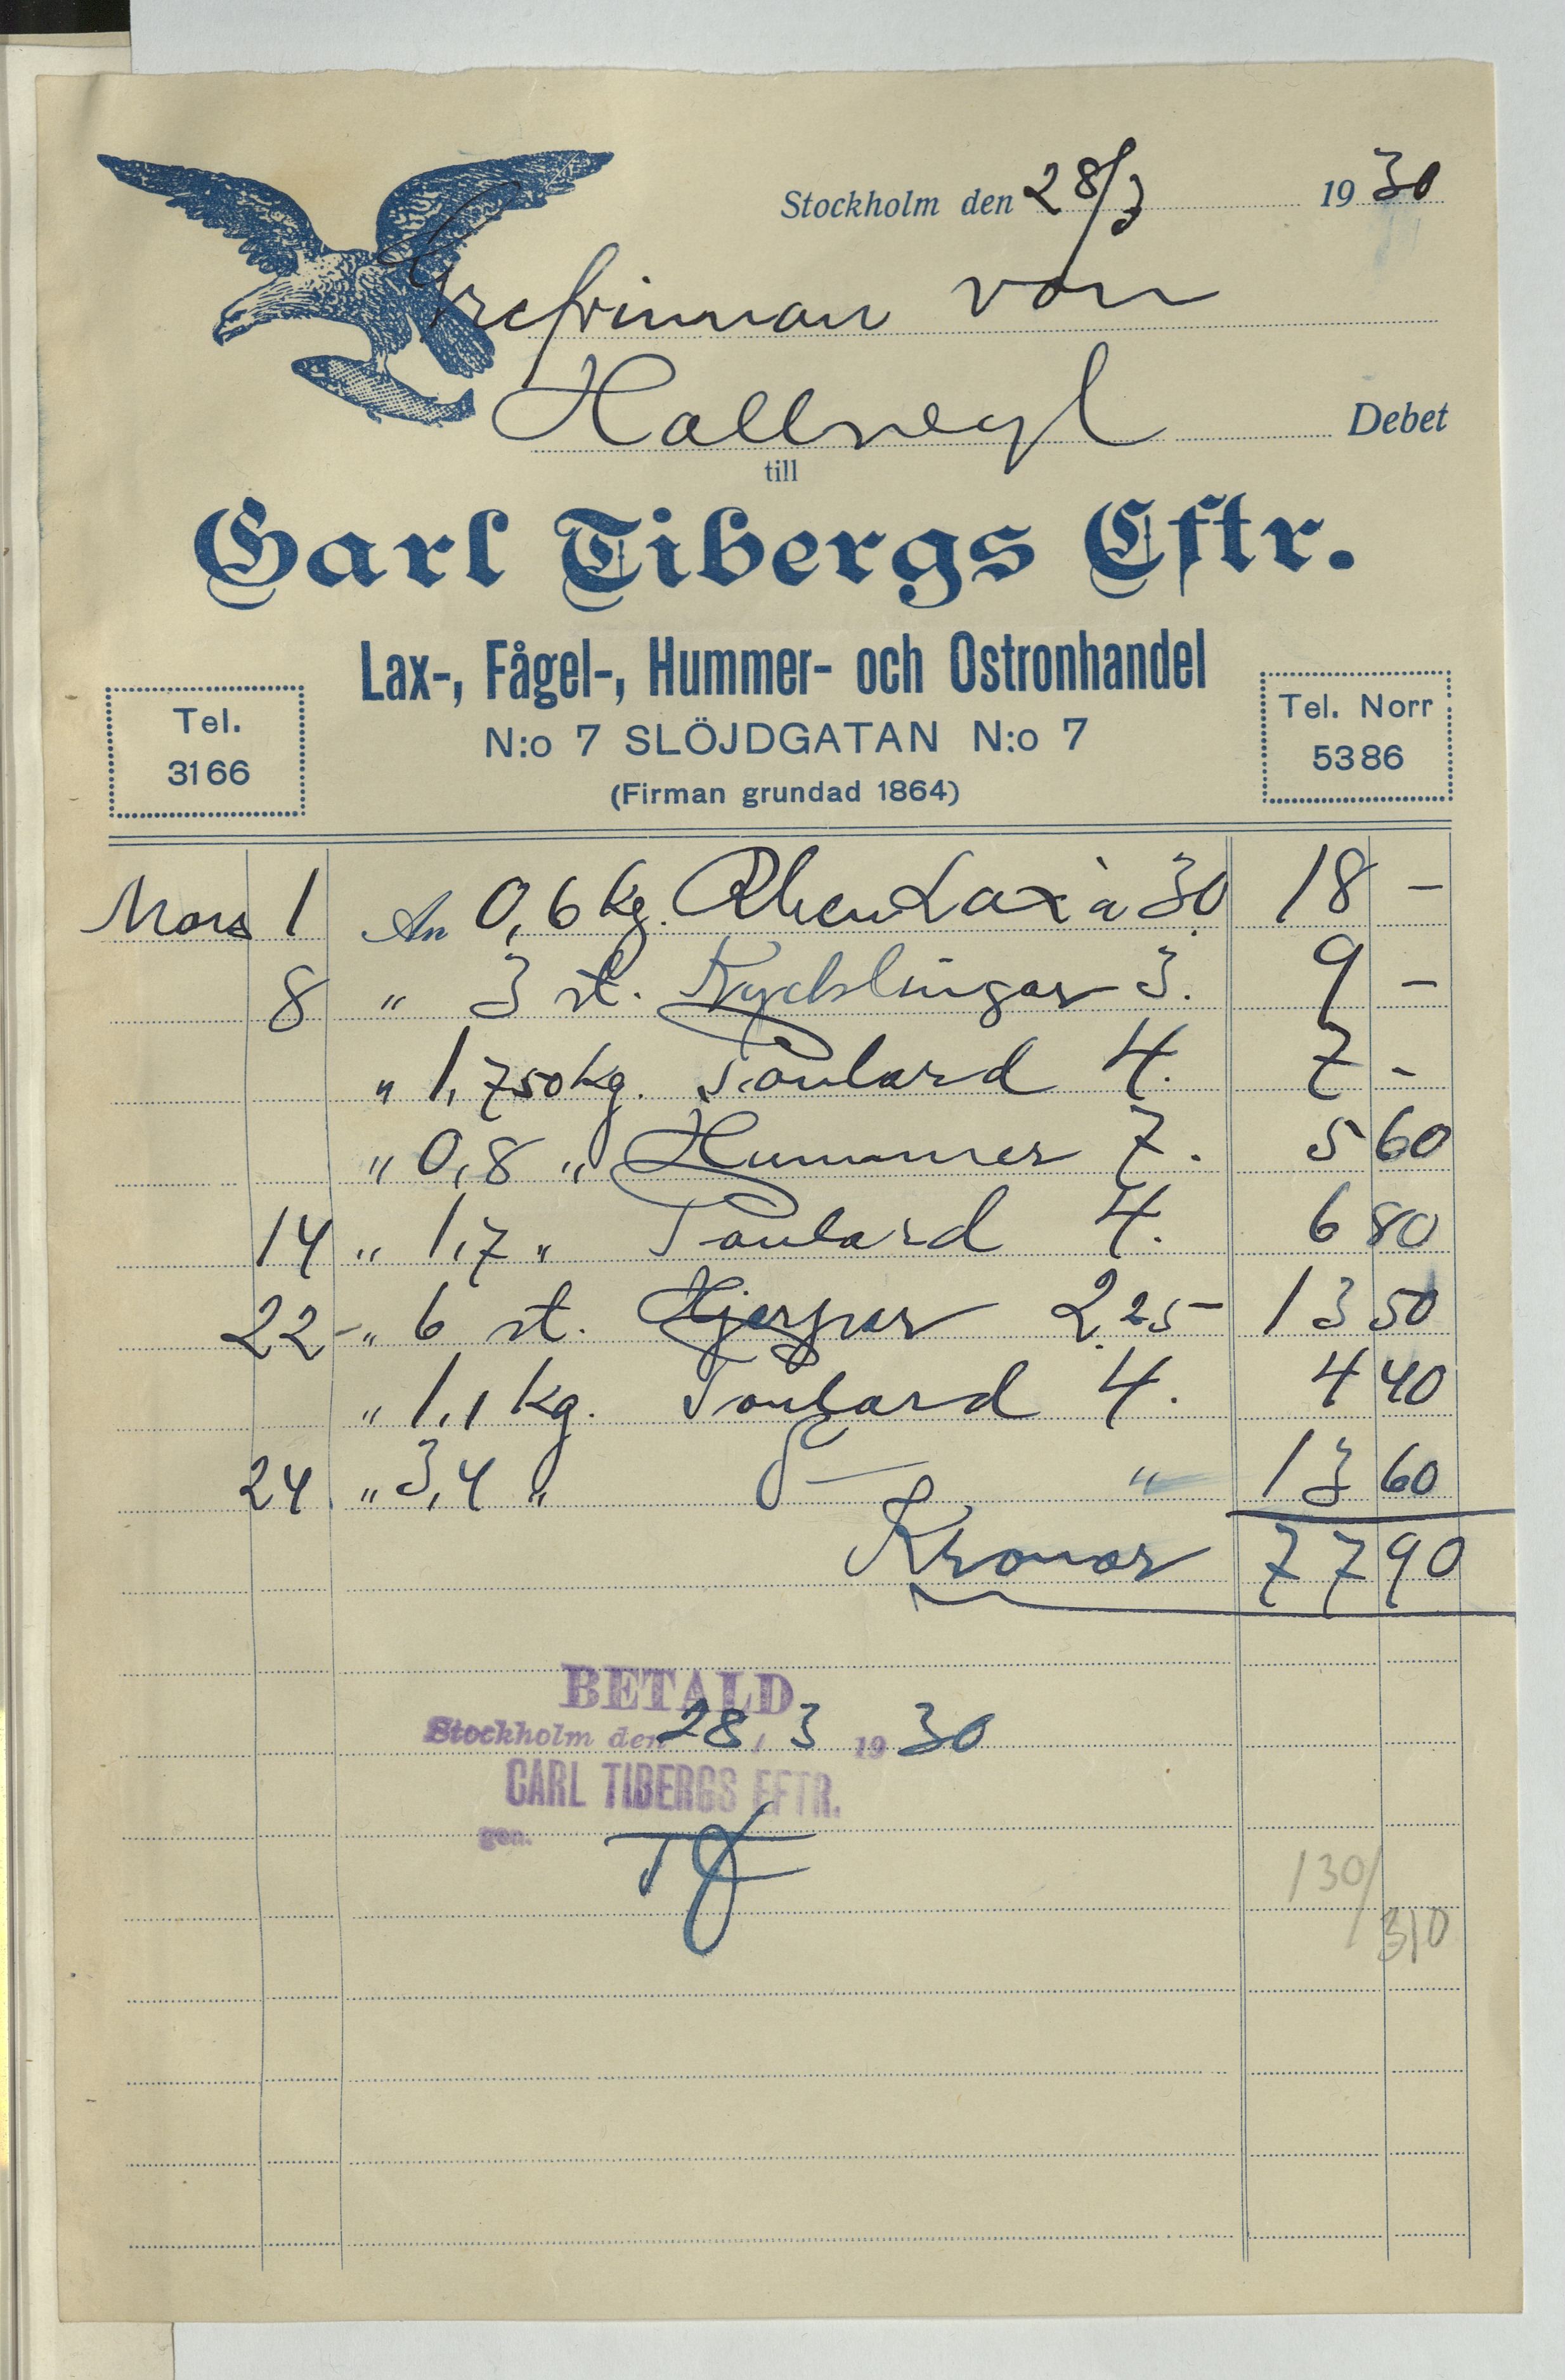 Stockholm den 28/3 1930
Grefvinnan von
Hallwyl Debet
till
Carl Tibergs Eftr.
Lax-, Fågel-, Hummer- och Ostronhandel
Tel. 3166
N:o 7 SLÖJDGATAN N:o 7
Tel. Norr 5386
(Firman grundad 1864)
Mars 1 An 0,6 kg. Rhen Lax à 30 18 -
8 " 3 st. Kycklingar 3. 9 -
" 1,750 kg. Poulard 4. 7 -
" 0,8 " Hummer 7. 5 60
14 " 1,7 " Poulard 4. 6 80
22 - " 6 st. Hjerpar 2,25- 13 50
" 1,1 kg. Poulard 4. 4 40
24 " 3,4 " " 13 60
Kronor 77 90
BETALD
Stockholm den 28/3 1930
CARL TIBERGS EFTR.
gen.
130/
310